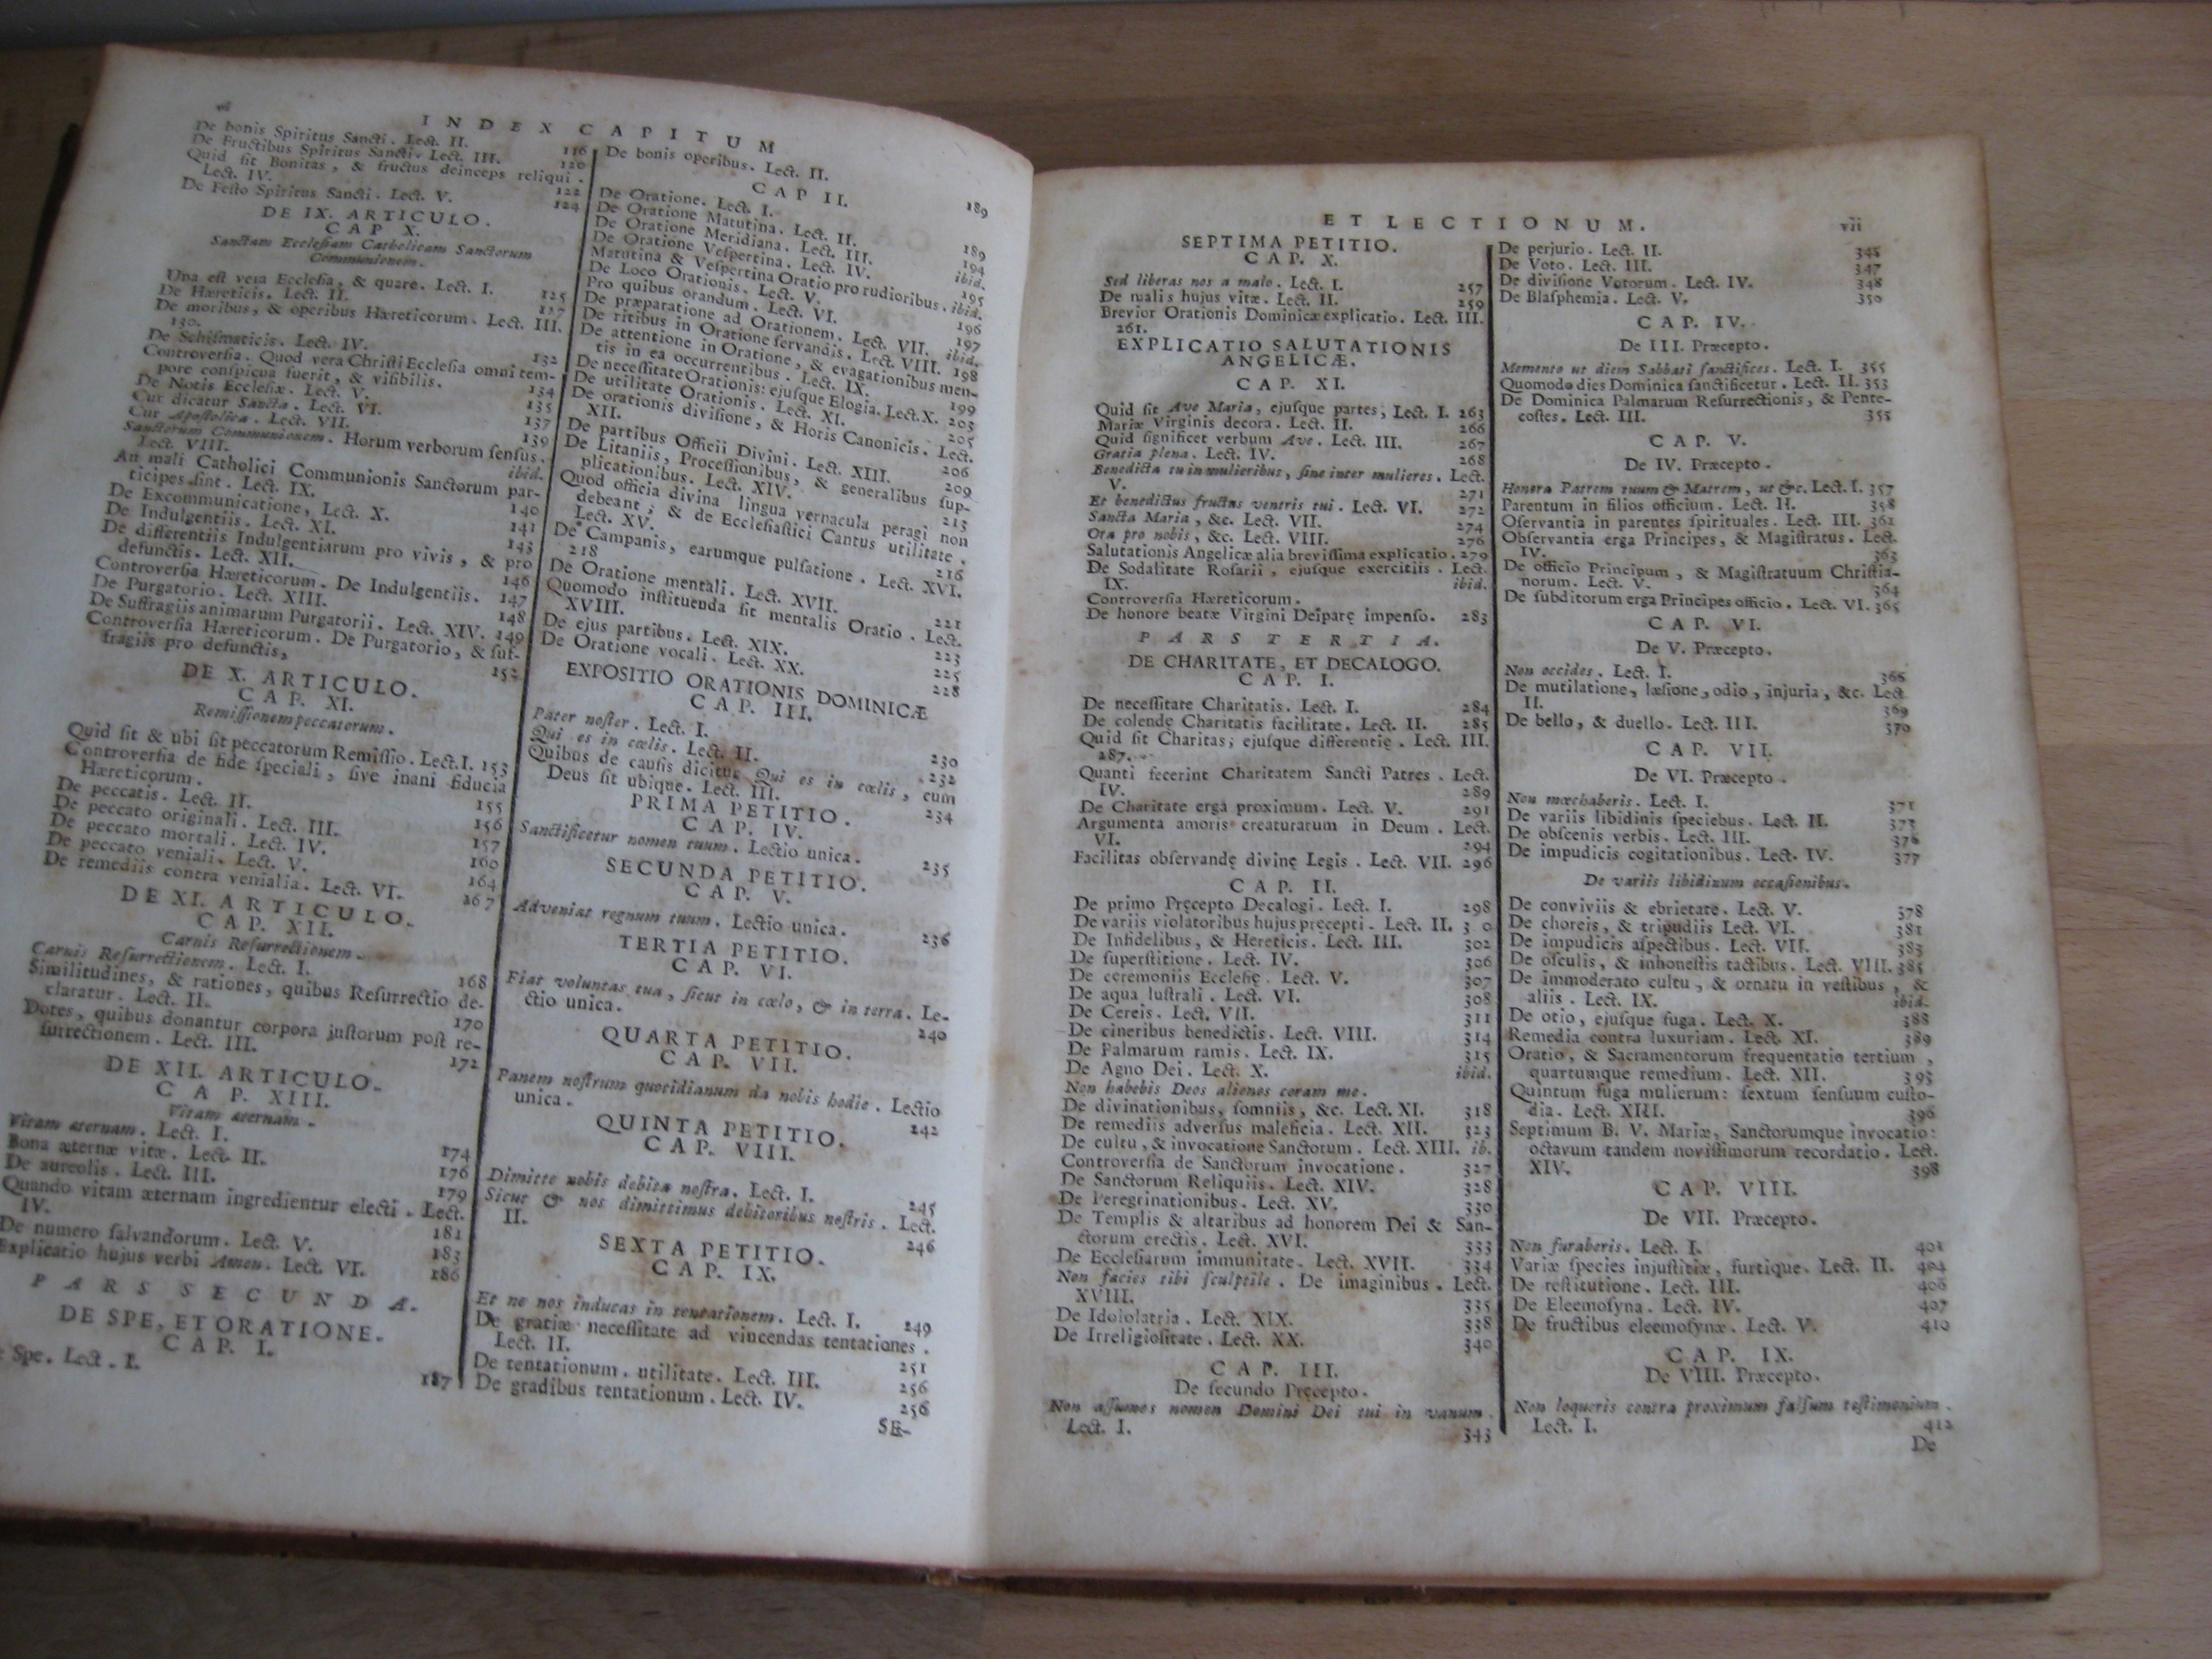 vi
INDEX CAPITUM
De bonis Spiritus Sancti. Lect. II. 116
De Fructibus Spiritus Sancti. Lect. III. 120
Quid sit Bonitas, & fructus deinceps reliqui.
Lect. IV. 122
De Festo Spiritus Sancti. Lect. V. 124
DE IX. ARTICULO.
CAP X.
Sanctam Ecclesiam Catholicam Sanctorum
Communionem.
Una est vera Ecclesia, & quare. Lect. I. 125
De Hæreticis. Lect. II. 127
De moribus, & operibus Hæreticorum. Lect. III.
130.
De Schismaticis. Lect. IV. 132
Controversia. Quod vera Christi Ecclesia omni tem-
pore conspicua fuerit, & visibilis. 134
De Notis Ecclesiæ. Lect. V. 135
Cur dicatur Sancta. Lect. VI. 137
Cur Apostolica. Lect. VII. 139
Sanctorum Communionem. Horum verborum sensus.
Lect. VIII. ibid.
An mali Catholici Communionis Sanctorum par-
ticipes sint. Lect. IX. 140
De Excommunicatione, Lect. X. 141
De Indulgentiis. Lect. XI. 143
De differentiis Indulgentiarum pro vivis, & pro
defunctis. Lect. XII. 146
Controversia Hæreticorum. De Indulgentiis. 147
De Purgatorio. Lect. XIII. 148
De Suffragiis animarum Purgatorii. Lect. XIV. 149
Controversia Hæreticorum. De Purgatorio, & suf-
fragiis pro defunctis, 152
DE X. ARTICULO.
CAP. XI.
Remissionem peccatorum.
Quid sit & ubi sit peccatorum Remissio. Lect. I. 153
Controversia de fide speciali, sive inani fiducia
Hæreticorum. 155
De peccatis. Lect. II. 156
De peccato originali. Lect. III. 157
De peccato mortali. Lect. IV. 160
De peccato veniali. Lect. V. 164
De remediis contra venialia. Lect. VI. 167
DE XI. ARTICULO.
CAP. XII.
Carnis Resurrectionem.
Carnis Resurrectionem. Lect. I. 168
Similitudines, & rationes, quibus Resurrectio de-
claratur. Lect. II. 170
Dotes, quibus donantur corpora justorum post re-
surrectionem. Lect. III. 172
DE XII. ARTICULO.
CAP. XIII.
Vitam æternam.
Vitam æternam. Lect. I. 174
Bona æternæ vitæ. Lect. II. 176
De aureolis. Lect. III. 179
Quando vitam æternam ingredientur electi. Lect.
IV. 181
De numero salvandorum. Lect. V. 183
Explicatio hujus verbi Amen. Lect. VI. 186
PARS SECUNDA.
DE SPE, ET ORATIONE.
CAP. I.
Spe. Lect. I. 187
De bonis operibus. Lect. II. 189
CAP II.
De Oratione. Lect. I. 189
De Oratione Matutina. Lect. II. 194
De Oratione Meridiana. Lect. III. ibid.
De Oratione Vespertina. Lect. IV. 195
Matutina & Vespertina Oratio pro rudioribus. ibid.
De Loco Orationis. Lect. V. 196
Pro quibus orandum. Lect. VI. 197
De præparatione ad Orationem. Lect. VII. ibid.
De ritibus in Oratione servandis. Lect. VIII. 198
De attentione in Oratione, & evagationibus men-
tis in ea occurrentibus. Lect. IX. 199
De necessitate Orationis: ejusque Elogia. Lect. X. 203
De utilitate Orationis. Lect. XI. 205
De orationis divisione, & Horis Canonicis. Lect.
XII. 206
De partibus Officii Divini. Lect. XIII. 209
De Litaniis, Processionibus, & generalibus sup-
plicationibus. Lect. XIV. 213
Quod officia divina lingua vernacula peragi non
debeant; & de Ecclesiastici Cantus utilitate.
Lect. XV. 216
De Campanis, earumque pulsatione. Lect. XVI.
218
De Oratione mentali. Lect. XVII. 221
Quomodo instituenda sit mentalis Oratio. Lect.
XVIII. 223
De ejus partibus. Lect. XIX. 225
De Oratione vocali. Lect. XX. 228
EXPOSITIO ORATIONIS DOMINICÆ
CAP. III.
Pater noster. Lect. I. 230
Qui es in cœlis. Lect. II. 232
Quibus de causis dicitur Qui es in cœlis, cum
Deus sit ubique. Lect. III. 234
PRIMA PETITIO.
CAP. IV.
Sanctificetur nomen tuum. Lectio unica. 235
SECUNDA PETITIO.
CAP. V.
Adveniat regnum tuum. Lectio unica. 236
TERTIA PETITIO.
CAP. VI.
Fiat voluntas tua, sicut in cœlo, & in terra. Le-
ctio unica. 240
QUARTA PETITIO.
CAP. VII.
Panem nostrum quotidianum da nobis hodie. Lectio
unica. 242
QUINTA PETITIO.
CAP. VIII.
Dimitte nobis debita nostra. Lect. I. 245
Sicut & nos dimittimus debitoribus nostris. Lect.
II. 246
SEXTA PETITIO.
CAP. IX.
Et ne nos inducas in tentationem. Lect. I. 249
De gratiæ necessitate ad vincendas tentationes.
Lect. II. 251
De tentationum. utilitate. Lect. III. 256
De gradibus tentationum. Lect. IV. 256
SE-
ET LECTIONUM. vii
SEPTIMA PETITIO.
CAP. X.
Sed liberas nos a malo. Lect. I. 257
De malis hujus vitæ. Lect. II. 259
Brevior Orationis Dominicæ explicatio. Lect. III.
261.
EXPLICATIO SALUTATIONIS
ANGELICÆ.
CAP. XI.
Quid sit Ave Maria, ejusque partes; Lect. I. 263
Mariæ Virginis decora. Lect. II. 266
Quid significet verbum Ave. Lect. III. 267
Gratia plena. Lect. IV. 268
Benedicta tu in mulieribus, sine inter mulieres. Lect.
V. 271
Et benedictus fructus ventris tui. Lect. VI. 272
Sancta Maria, &c. Lect. VII. 274
Ora pro nobis, &c. Lect. VIII. 276
Salutationis Angelicæ alia brevissima explicatio. 279
De Sodalitate Rosarii, ejusque exercitiis. Lect.
IX. ibid.
Controversia Hæreticorum.
De honore beatæ Virgini Deiparę impenso. 283
PARS TERTIA.
DE CHARITATE, ET DECALOGO.
CAP. I.
De necessitate Charitatis. Lect. I. 284
De colendę Charitatis facilitate. Lect. II. 285
Quid sit Charitas; ejusque differentię. Lect. III.
287.
Quanti fecerint Charitatem Sancti Patres. Lect.
IV. 289
De Charitate erga proximum. Lect. V. 291
Argumenta amoris creaturarum in Deum. Lect.
VI. 294
Facilitas observandę divinę Legis. Lect. VII. 296
CAP. II.
De primo Pręcepto Decalogi. Lect. I. 298
De variis violatoribus hujus pręcepti. Lect. II. 3 0
De Infidelibus, & Hereticis. Lect. III. 302
De superstitione. Lect. IV. 306
De ceremoniis Ecclesię. Lect. V. 307
De aqua lustrali. Lect. VI. 308
De Cereis. Lect. VII. 311
De cineribus benedictis. Lect. VIII. 314
De Palmarum ramis. Lect. IX. 315
De Agno Dei. Lect. X. ibid.
Non habebis Deos alienos coram me.
De divinationibus, somniis, &c. Lect. XI. 318
De remediis adversus maleficia. Lect. XII. 323
De cultu, & invocatione Sanctorum. Lect. XIII. ib.
Controversia de Sanctorum invocatione. 327
De Sanctorum Reliquiis. Lect. XIV. 328
De Peregrinationibus. Lect. XV. 330
De Templis & altaribus ad honorem Dei & San-
ctorum erectis. Lect. XVI. 333
De Ecclesiarum immunitate. Lect. XVII. 334
Non facies tibi sculptile. De imaginibus. Lect.
XVIII. 335
De Idololatria. Lect. XIX. 338
De Irreligiositate. Lect. XX. 340
CAP. III.
De secundo Pręcepto.
Non assumes nomen Domini Dei tui in vanum.
Lect. I. 343
De perjurio. Lect. II. 345
De Voto. Lect. III. 347
De divisione Votorum. Lect. IV. 348
De Blasphemia. Lect. V. 350
CAP. IV.
De III. Præcepto.
Memento ut diem Sabbati sanctifices. Lect. I. 355
Quomodo dies Dominica sanctificetur. Lect. II. 353
De Dominica Palmarum Resurrectionis, & Pente-
costes. Lect. III. 355
CAP. V.
De IV. Præcepto.
Honora Patrem tuum & Matrem, ut &c. Lect. I. 357
Parentum in filios officium. Lect. II. 358
Oservantia in parentes spirituales. Lect. III. 361
Observantia erga Principes, & Magistratus. Lect.
IV. 363
De officio Principum, & Magistratuum Christia-
norum. Lect. V. 364
De subditorum erga Principes officio. Lect. VI. 365
CAP. VI.
De V. Præcepto.
Non occides. Lect. I. 366
De mutilatione, læsione, odio, injuria, &c. Lect
II. 369
De bello, & duello. Lect. III. 370
CAP. VII.
De VI. Præcepto.
Non mœchaberis. Lect. I. 371
De variis libidinis speciebus. Lect. II. 373
De obscenis verbis. Lect. III. 376
De impudicis cogitationibus. Lect. IV. 377
De variis libidinum occasionibus.
De conviviis & ebrietate. Lect. V. 378
De choreis, & tripudiis Lect. VI. 381
De impudicis aspectibus. Lect. VII. 383
De osculis, & inhonestis tactibus. Lect. VIII. 385
De immoderato cultu, & ornatu in vestibus, &
aliis. Lect. IX. ibid.
De otio, ejusque fuga. Lect. X. 388
Remedia contra luxuriam. Lect. XI. 389
Oratio, & Sacramentorum frequentatio tertium,
quartumque remedium. Lect. XII. 393
Quintum fuga mulierum: sextum sensuum custo-
dia. Lect. XIII. 396
Septimum B. V. Mariæ, Sanctorumque invocatio:
octavum tandem novissimorum recordatio. Lect.
XIV. 398
CAP. VIII.
De VII. Præcepto.
Non furaberis. Lect. I. 401
Variæ species injustitiæ, furtique. Lect. II. 404
De restitutione. Lect. III. 406
De Eleemosyna. Lect. IV. 407
De fructibus eleemosynæ. Lect. V. 410
CAP. IX.
De VIII. Præcepto.
Non loqueris contra proximum falsum testimonium.
Lect. I. 412
De